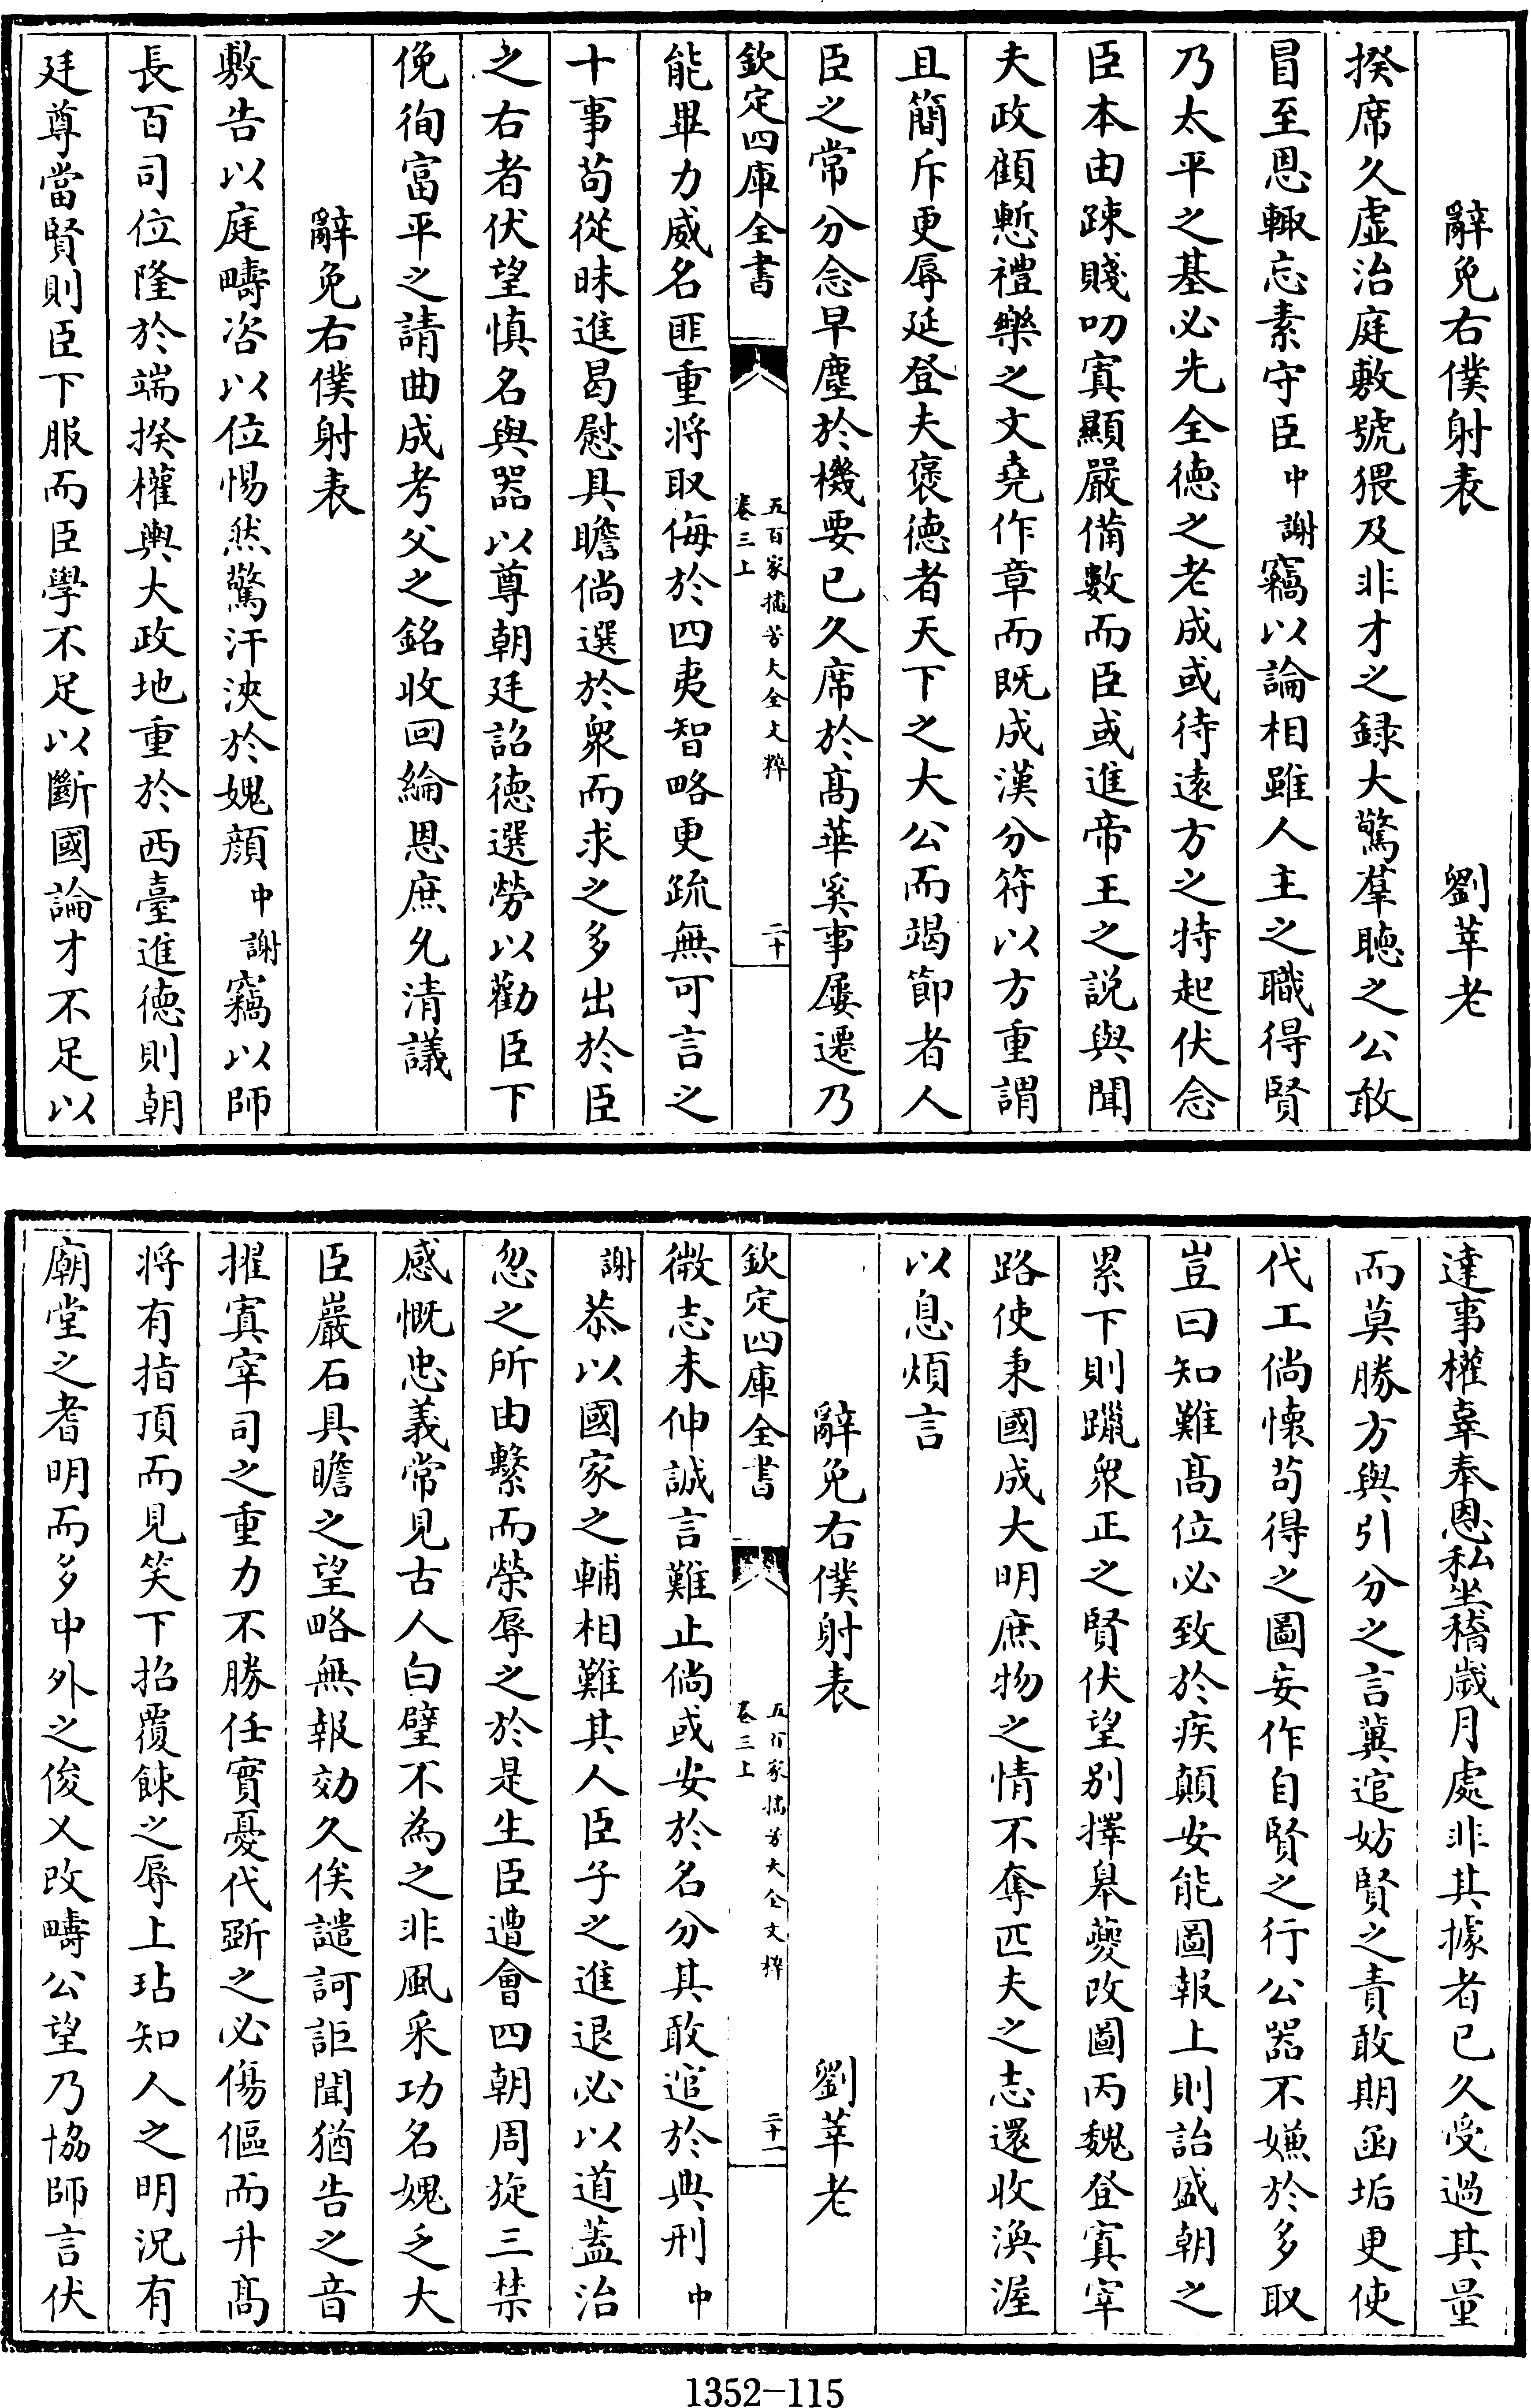 辭免右僕射表 劉莘老
揆席久虛治庭敷號猥及非才之録大驚羣聽之公敢
冒至恩輙忘素守臣中謝竊以論相雖人主之職得賢
乃太平之基必先全徳之老成或待逺方之特起伏念
臣本由踈賤叨寘顯嚴備數而臣或進帝王之説與聞
夫政顧慙禮樂之文堯作章而既成漢分符以方重謂
且簡斥更辱延登夫褒徳者天下之大公而竭節者人
臣之常分念早塵於機要已久席於髙華奚事屢遷乃
欽定四庫全書
五百家播芳大全文粹
卷三上
二十
能畢力威名匪重將取侮於四夷智略更疏無可言之
十事茍從昧進曷慰具瞻倘選於衆而求之多出於臣
之右者伏望慎名與器以尊朝廷詔徳選勞以勸臣下
俛徇富平之請曲成考父之銘收回綸恩庶允清議
辭免右僕射表
敷告以庭疇咨以位惕然驚汗浹於媿顔中謝竊以師
長百司位隆於端揆權輿大政地重於西臺進徳則朝
廷尊當賢則臣下服而臣學不足以斷國論才不足以
達事權辜奉恩私坐稽嵗月處非其據者已久受過其量
而莫勝方與引分之言冀逭妨賢之責敢期函垢更使
代工倘懐茍得之圖妄作自賢之行公器不嫌於多取
豈曰知難髙位必致於疾顛安能圖報上則詒盛朝之
累下則躐衆正之賢伏望别擇皋夔改圖丙魏登寘宰
路使秉國成大明庶物之情不奪匹夫之志還收渙渥
以息煩言
辭免右僕射表 劉莘老
欽定四庫全書
五百家播芳大全文粹
卷三上
二十一
微志未伸誠言難止倘或安於名分其敢逭於典刑中
謝恭以國家之輔相難其人臣子之進退必以道蓋治
忽之所由繫而榮辱之於是生臣遭會四朝周旋三禁
感慨忠義常見古人白璧不為之非風采功名媿乏大
臣巖石具瞻之望略無報効久俟譴訶詎聞猶告之音
擢寘宰司之重力不勝任實憂代斲之必傷傴而升髙
將有指頂而見笑下招覆餗之辱上玷知人之明況有
廟堂之耆明而多中外之俊乂改疇公望乃協師言伏
1352-115